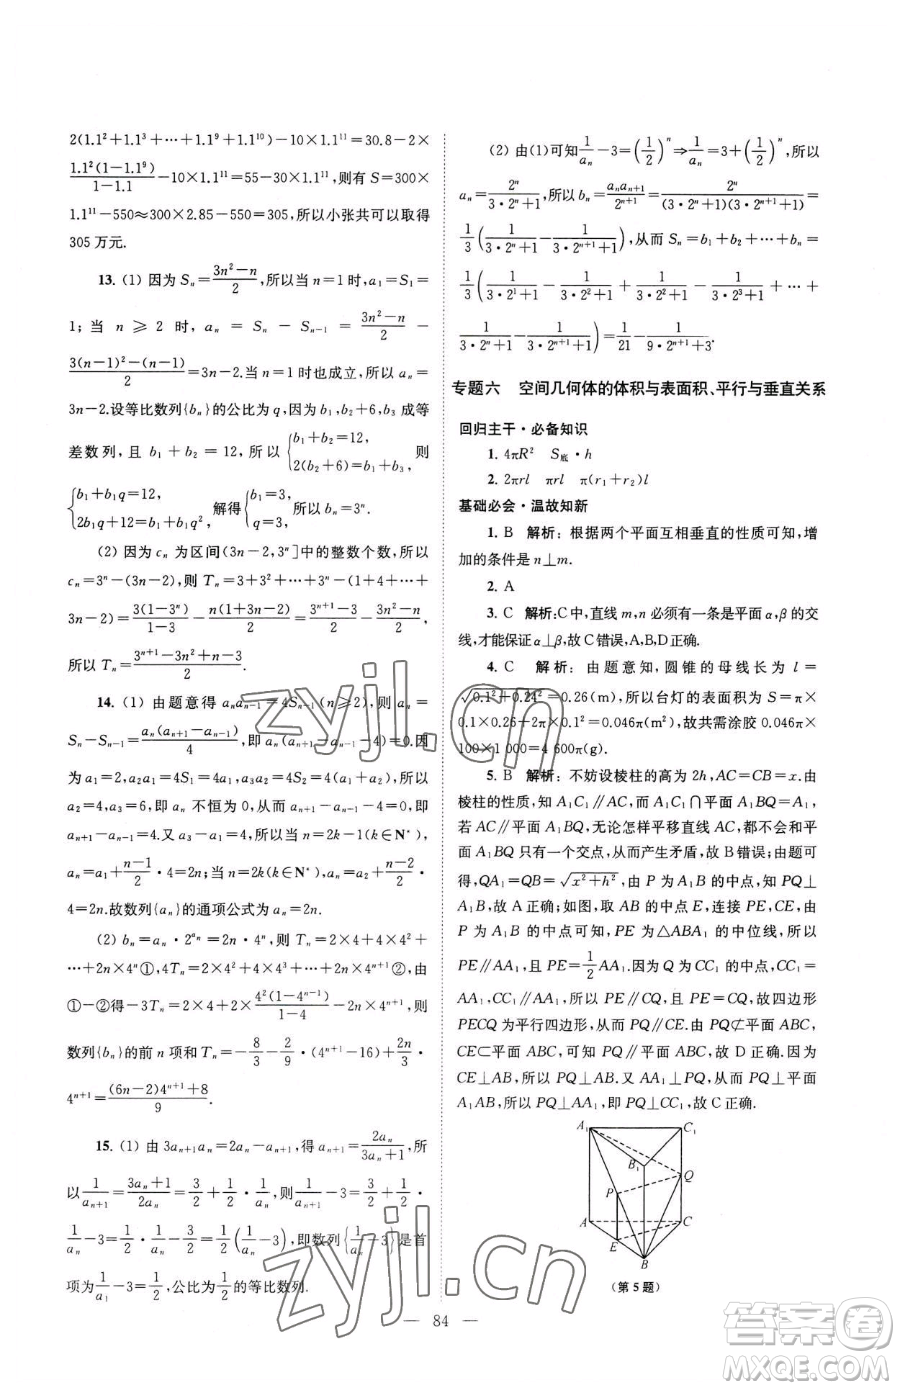 2(1.1²+1.1³+⋯+1.1⁹+1.1¹⁰)−10×1.1¹¹=30.8−2×
\frac{1.1²(1−1.1⁹)}{1−1.1}−10×1.1¹¹=55−30×1.1¹¹,则有 S=300×
1.1¹¹−550≈300×2.85−550=305,所以小张共可以取得
305 万元.
13. (1) 因为 Sₙ=\frac{3n²−n}{2},所以当 n=1 时,a₁=S₁=
1;当 n≥2 时,aₙ=Sₙ−Sₙ₋₁=\frac{3n²−n}{2}−
\frac{3(n−1)²−(n−1)}{2}=3n−2.当 n=1 时也成立,所以 aₙ=
3n−2.设等比数列{bₙ}的公比为 q,因为 b₁,b₂+6,b₃ 成等
差数列,且 b₁+b₂=12,所以{b₁+b₂=12, 2(b₂+6)=b₁+b₃, 则
{b₁+b₁q=12, 2b₁q+12=b₁+b₁q², 解得{b₁=3, q=3, 所以 bₙ=3ⁿ.
(2) 因为 cₙ 为区间(3n−2,3ⁿ]中的整数个数,所以
cₙ=3ⁿ−(3n−2),则 Tₙ=3+3²+⋯+3ⁿ−(1+4+⋯+
3n−2)=\frac{3(1−3ⁿ)}{1−3}−\frac{n(1+3n−2)}{2}=\frac{3ⁿ⁺¹−3}{2}−\frac{3n²−n}{2},
所以 Tₙ=\frac{3ⁿ⁺¹−3n²+n−3}{2}.
14. (1) 由题意得 aₙaₙ₋₁=4Sₙ₋₁(n≥2),则 aₙ=
Sₙ−Sₙ₋₁=\frac{aₙ(aₙ₊₁−aₙ₋₁)}{4},即 aₙ(aₙ₊₁−aₙ₋₁−4)=0.因
为 a₁=2,a₂a₁=4S₁=4a₁,a₃a₂=4S₂=4(a₁+a₂),所以
a₂=4,a₃=6,即 aₙ 不恒为 0,从而 aₙ₊₁−aₙ₋₁−4=0,所以
aₙ₊₁−aₙ₋₁=4.又 a₃−a₁=4,所以当 n=2k−1(k∈N*),
aₙ=a₁+\frac{n−1}{2}·4=2n;当 n=2k(k∈N*),aₙ=a₂+\frac{n−2}{2}·
4=2n.故数列{aₙ}的通项公式为 aₙ=2n.
(2) bₙ=aₙ·2^{aₙ}=2n·4ⁿ,则 Tₙ=2×4+4×4²+
⋯+2n×4ⁿ①,4Tₙ=2×4²+4×4³+⋯+2n×4ⁿ⁺¹②,由
①−②得−3Tₙ=2×4+2×\frac{4²(1−4ⁿ⁻¹)}{1−4}−2n×4ⁿ⁺¹,则
数列{bₙ}的前 n 项和 Tₙ=−\frac{8}{3}−\frac{2}{9}·(4ⁿ⁺¹−16)+\frac{2n}{3}·
4ⁿ⁺¹=\frac{(6n−2)4ⁿ⁺¹+8}{9}.
15. (1) 由 3aₙ₊₁aₙ=2aₙ−aₙ₊₁,得 aₙ₊₁=\frac{2aₙ}{3aₙ+1},所
以\frac{1}{aₙ₊₁}=\frac{3aₙ+1}{2aₙ}=\frac{3}{2}+\frac{1}{2}·\frac{1}{aₙ},则\frac{1}{aₙ₊₁}−3=\frac{3}{2}+\frac{1}{2}·
\frac{1}{aₙ}−3=\frac{1}{2}·\frac{1}{aₙ}−\frac{3}{2}=\frac{1}{2}(\frac{1}{aₙ}−3),即数列{\frac{1}{aₙ}−3}是首
项为\frac{1}{a₁}−3,公比为\frac{1}{2}的等比数列.
(2) 由(1)可知\frac{1}{aₙ}−3=(\frac{1}{2})ⁿ⇒\frac{1}{aₙ}=3+(\frac{1}{2})ⁿ,所以
aₙ=\frac{2ⁿ}{3·2ⁿ+1},所以 bₙ=\frac{aₙaₙ₊₁}{2ⁿ⁺¹}=\frac{2ⁿ}{(3·2ⁿ+1)(3·2ⁿ⁺¹+1)}=
\frac{1}{3}(\frac{1}{3·2ⁿ+1}−\frac{1}{3·2ⁿ⁺¹+1}),从而 Sₙ=b₁+b₂+⋯+bₙ=
\frac{1}{3}(\frac{1}{3·2¹+1}−\frac{1}{3·2²+1}+\frac{1}{3·2²+1}−\frac{1}{3·2³+1}+⋯+
\frac{1}{3·2ⁿ+1}−\frac{1}{3·2ⁿ⁺¹+1})=\frac{1}{21}−\frac{1}{9·2ⁿ⁺¹+3}.
专题六 空间几何体的体积与表面积、平行与垂直关系
回归主干·必备知识
1. 4πR² S底·h
2. 2πrl πrl π(r₁+r₂)l
基础必会·温故知新
1. B 解析:根据两个平面互相垂直的性质可知,增
加的条件是 n⊥m.
2. A
3. C 解析:C中,直线 m,n 必须有一条是平面 α,β 的交
线,才能保证 α⊥β,故 C 错误,A,B,D 正确.
4. C 解析:由题意知,圆锥的母线长为 l=
√(0.1²+0.24²)=0.26(m),所以台灯的表面积为 S=π×
0.1×0.26+2π×0.1²=0.046π(m²),故共需涂胶 0.046π×
100×1 000=4 600π(g).
5. B 解析:不妨设棱柱的高为 2h,AC=CB=x.由
棱柱的性质,知 A₁C₁∥AC,而 A₁C₁∩平面 A₁BQ=A₁,
若 AC∥平面 A₁BQ,无论怎样平移直线 AC,都不会和平
面 A₁BQ 只有一个交点,所以产生矛盾,故 B 错误;由题可
得,QA₁=QB=√(x²+h²),由 P 为 A₁B 的中点,知 PQ⊥
A₁B,故 A 正确;如图,取 AB 的中点 E,连接 PE,EC,由
P 为 A₁B 的中点可知,PE 为△ABA₁ 的中位线,所以
PE∥AA₁,且 PE=\frac{1}{2}AA₁.因为 Q 为 CC₁ 的中点,
CC₁∥AA₁,所以 PE∥CQ,且 PE=CQ,故四边形
PECQ 为平行四边形,从而 PQ∥CE.由 PQ⊄平面 ABC,
CE⊂平面 ABC,可知 PQ∥平面 ABC,故 D 正确.因为
CE⊥AB,所以 PQ⊥AB.因为 PQ⊥A₁B,所以 PQ⊥平面
A₁AB,所以 PQ⊥AA₁,即 PQ⊥CC₁,故 C 正确.
A₁
C₁
B₁
Q
P
A
C
E
B
(第 5 题)
— 84 —
zyjl.cn
zyjl.cn
答案圈
MXQE.COM